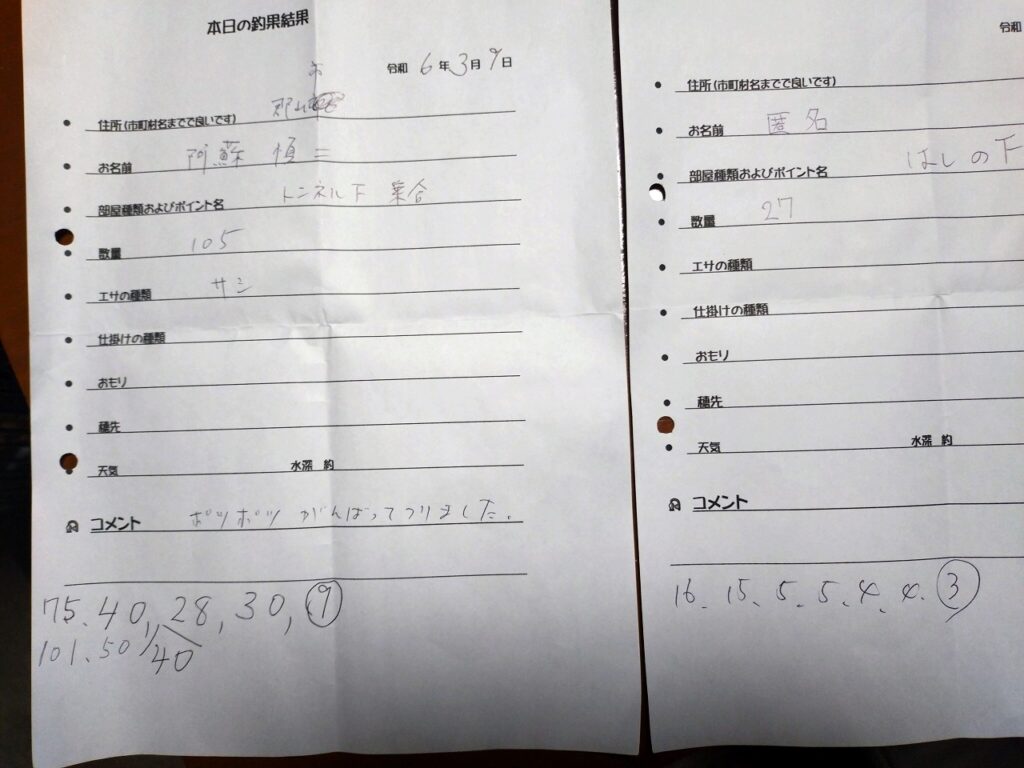 本日の釣果結果
令和 6年3月9日
住所(市町村名までで良いです) 郡山市
お名前 阿蘇 慎三
部屋種類およびポイント名 トンネル下 集合
数量 105
エサの種類 サシ
仕掛けの種類
おもり
穂先
天気 水深 約
コメント ポツポツ がんばってつりました。
75.40,28,30,9
101.50 40
令和
住所(市町村名までで良いです)
お名前 匿名
部屋種類およびポイント名 はしの下
数量 27
エサの種類
仕掛けの種類
おもり
穂先
天気 水深 約
コメント
16、15、5、5、4、4、3